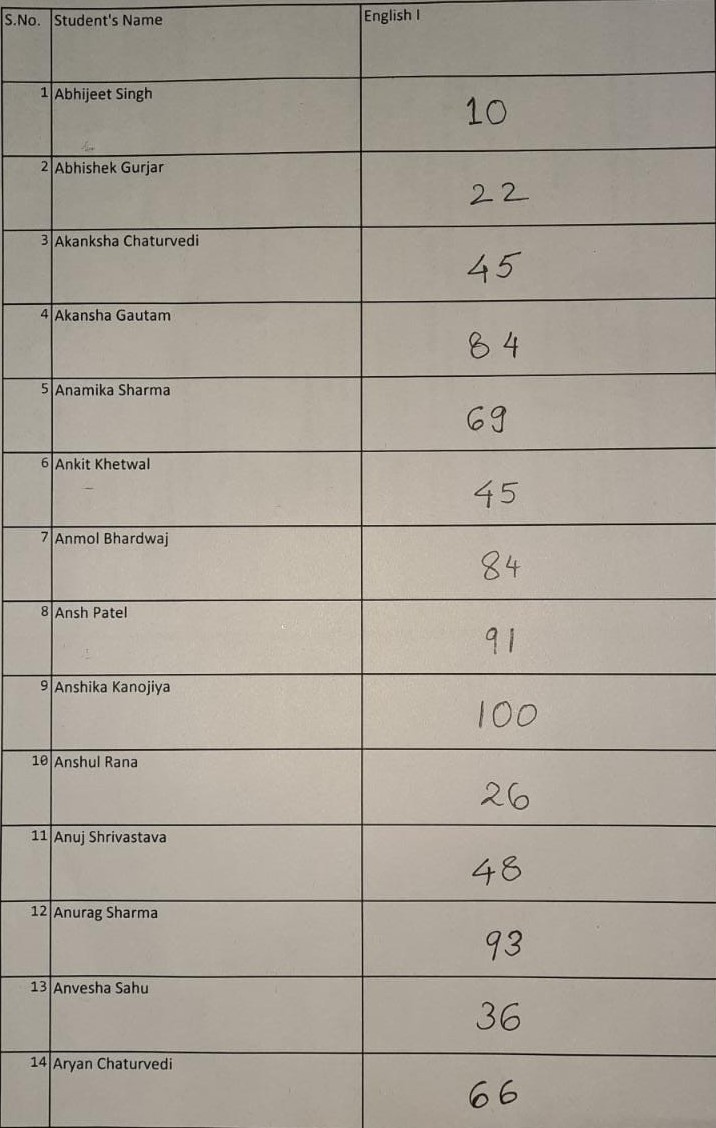 S.No. Student's Name English I
1 Abhijeet Singh 10
2 Abhishek Gurjar 22
3 Akanksha Chaturvedi 45
4 Akansha Gautam 84
5 Anamika Sharma 69
6 Ankit Khetwal 45
7 Anmol Bhardwaj 84
8 Ansh Patel 91
9 Anshika Kanojiya 100
10 Anshul Rana 26
11 Anuj Shrivastava 48
12 Anurag Sharma 93
13 Anvesha Sahu 36
14 Aryan Chaturvedi 66